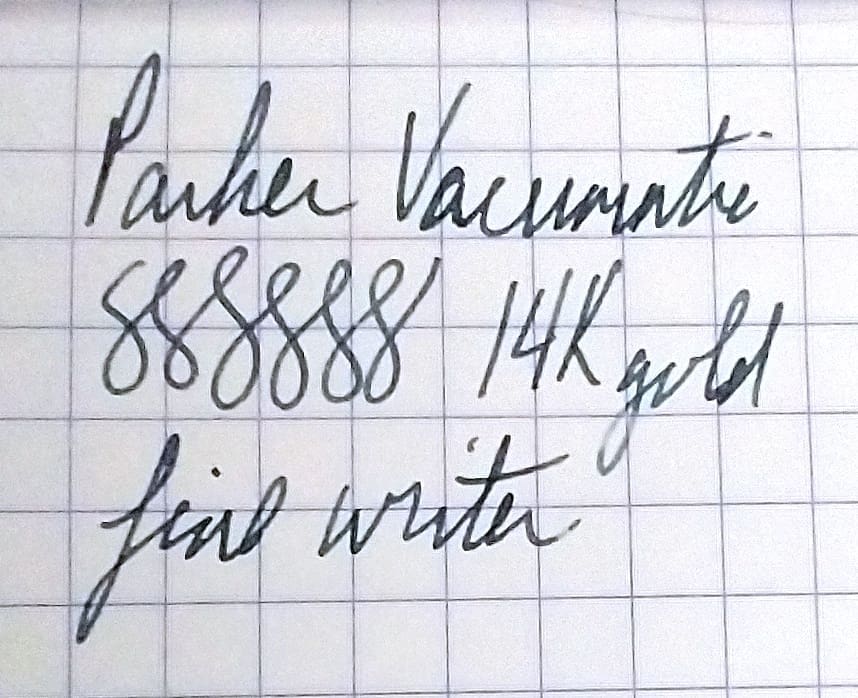 Parker Vacumatic
888888 14K gold
fine writer